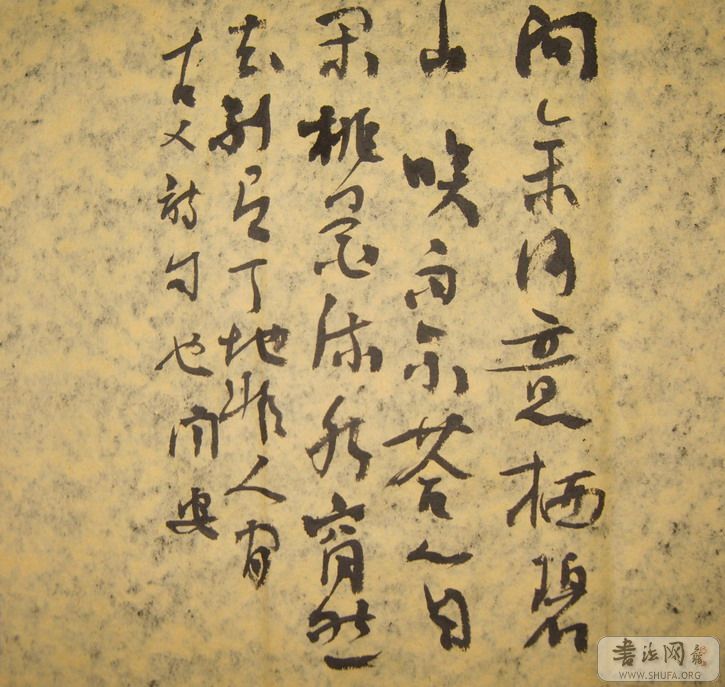 问余何意栖碧
山咲而不答心自
闲桃花流水窅然
去别有天地非人间
古人诗句也
书法网
WWW.SHUFA.ORG